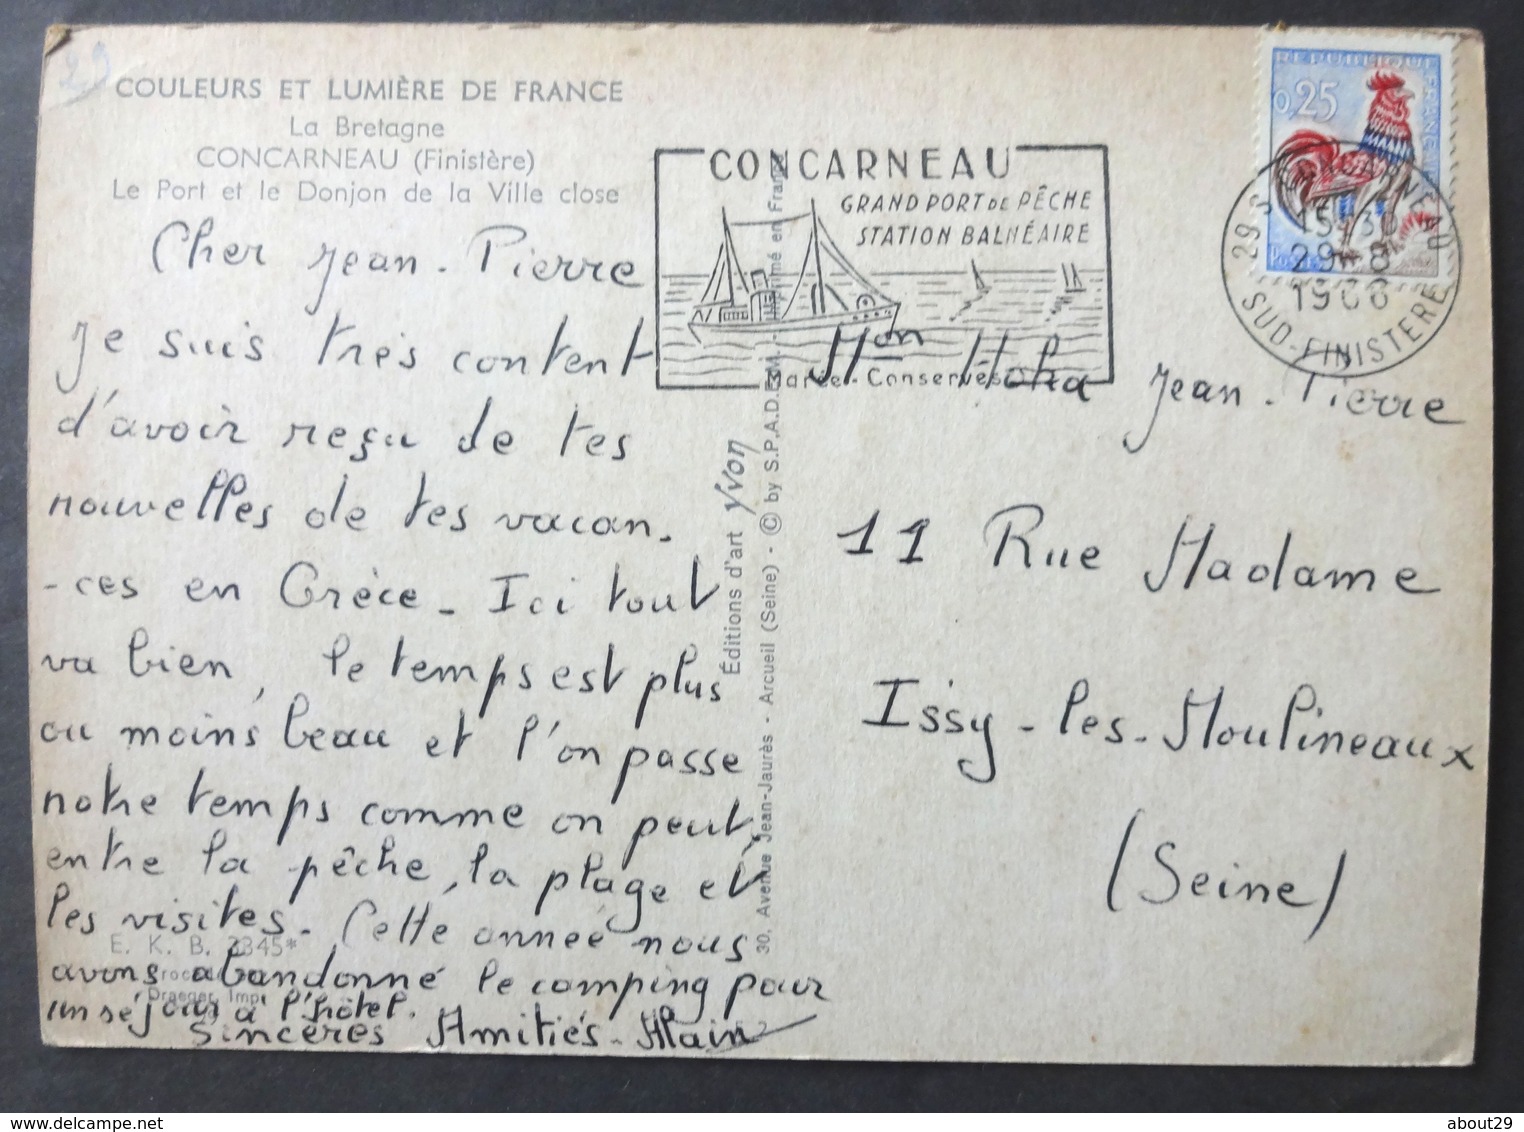 29
COULEURS ET LUMIÈRE DE FRANCE
La Bretagne
CONCARNEAU (Finistère)
Le Port et le Donjon de la Ville close
Cher Jean-Pierre
Je suis très content
d'avoir reçu de tes
nouvelles de tes vacan-
-ces en Grèce - Ici tout
va bien, le temps est plus
ou moins beau et l'on passe
notre temps comme on peut,
entre la pêche, la plage et
les visites - Cette année nous
avons abandonné le camping pour
un séjour à l'hôtel.
Sincères Amitiés - Alain
E. K. B. 2345*
Draeger Imp.
Éditions d'art Yvon
30, Avenue Jean-Jaurès - Arcueil (Seine) - © by S.P.A.D.E.M. - Imprimé en France
CONCARNEAU
GRAND PORT DE PÊCHE
STATION BALNÉAIRE
Marée - Conserves
REPUBLIQUE FRANÇAISE
0,25
29 S CONCARNEAU
15H30
29-8
1966
SUD-FINISTERE
Mon Hoka Jean-Pierre
11 Rue Madame
Issy-les-Moulineaux
(Seine)
about29